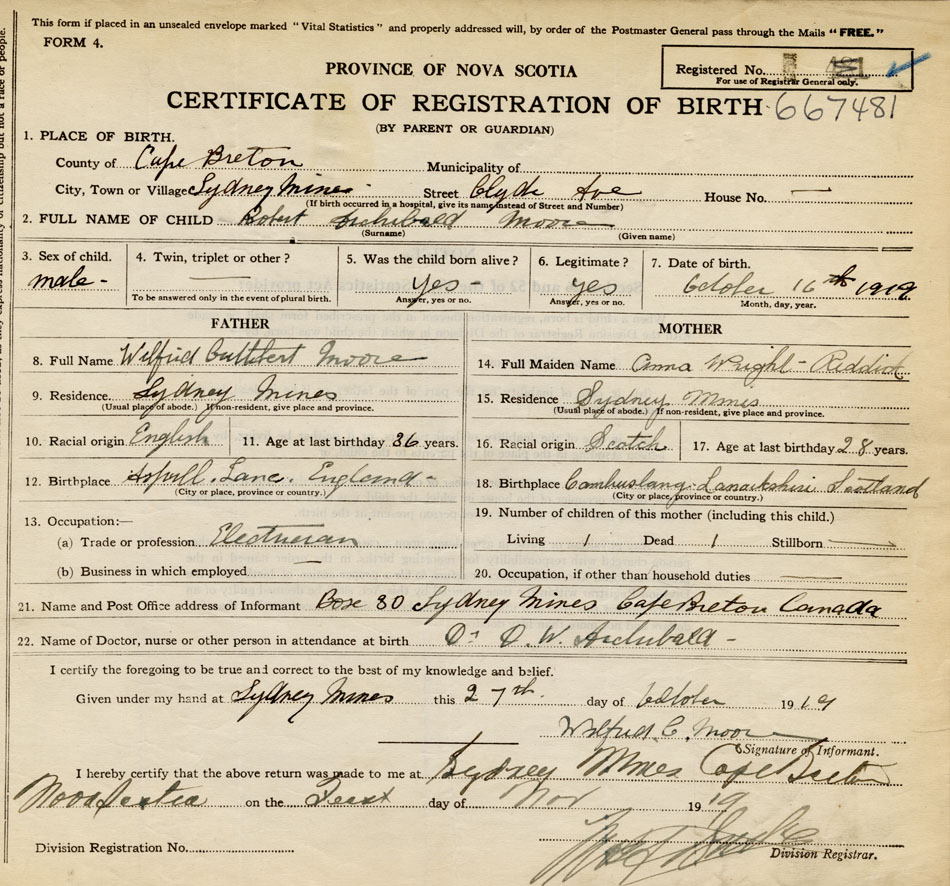 This form if placed in an unsealed envelope marked "Vital Statistics" and properly addressed will, by order of the Postmaster General pass through the Mails "FREE."
FORM 4.
Registered No.
For use of Registrar General only.
PROVINCE OF NOVA SCOTIA
CERTIFICATE OF REGISTRATION OF BIRTH 667481
(BY PARENT OR GUARDIAN)
1. PLACE OF BIRTH.
County of Cape Breton Municipality of
City, Town or Village Sydney Mines Street Clyde Ave House No. —
(If birth occurred in a hospital, give its name instead of Street and Number)
2. FULL NAME OF CHILD Robert Archibald Moore
(Surname) (Given name)
3. Sex of child. 4. Twin, triplet or other? 5. Was the child born alive? 6. Legitimate? 7. Date of birth.
male - — yes - yes October 16th 1919
To be answered only in the event of plural birth. Answer, yes or no. Answer, yes or no. Month, day, year.
FATHER
8. Full Name Wilfrid Cuthbert Moore
9. Residence. Sydney Mines
(Usual place of abode.) If non-resident, give place and province.
10. Racial origin English 11. Age at last birthday 36 years.
12. Birthplace Aspull. Lanc. England -
(City or place, province or country.)
13. Occupation:—
(a) Trade or profession Electrician
(b) Business in which employed —
MOTHER
14. Full Maiden Name Anna Wright - Reddick
15. Residence Sydney Mines
(Usual place of abode.) If non-resident, give place and province.
16. Racial origin Scotch 17. Age at last birthday 28 years.
18. Birthplace Cambuslang. Lanarkshire Scotland
(City or place, province or country.)
19. Number of children of this mother (including this child.)
Living 1 Dead 1 Stillborn —
20. Occupation, if other than household duties —
21. Name and Post Office address of Informant Box 80 Sydney Mines Cape Breton Canada
22. Name of Doctor, nurse or other person in attendance at birth Dr D. W. Archibald -
I certify the foregoing to be true and correct to the best of my knowledge and belief.
Given under my hand at Sydney Mines this 27th day of October 1919
Wilfrid C. Moore
Signature of Informant.
I hereby certify that the above return was made to me at Sydney Mines Cape Breton
Nova Scotia on the First day of Nov 1919
Division Registration No.
Division Registrar.